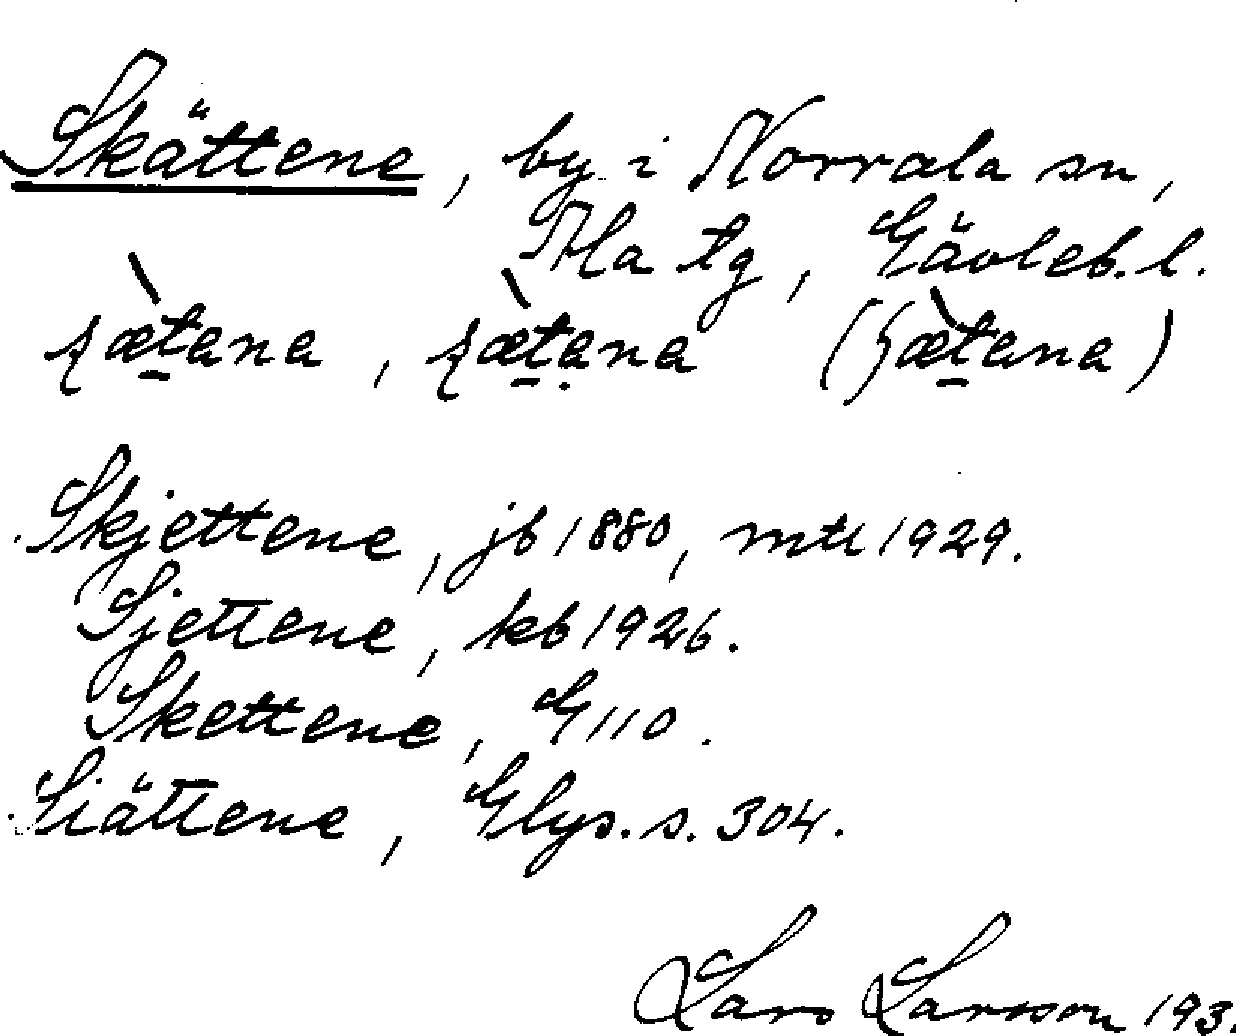 Skättene, by i Norrala sn,
Ala tg, Gävleb. l.
Skjettene, jb 1880, mtl 1929.
Sjettene, kb 1926.
Skettene, G 110.
Siättene, Glys. s. 304.
Lars Larsson 193